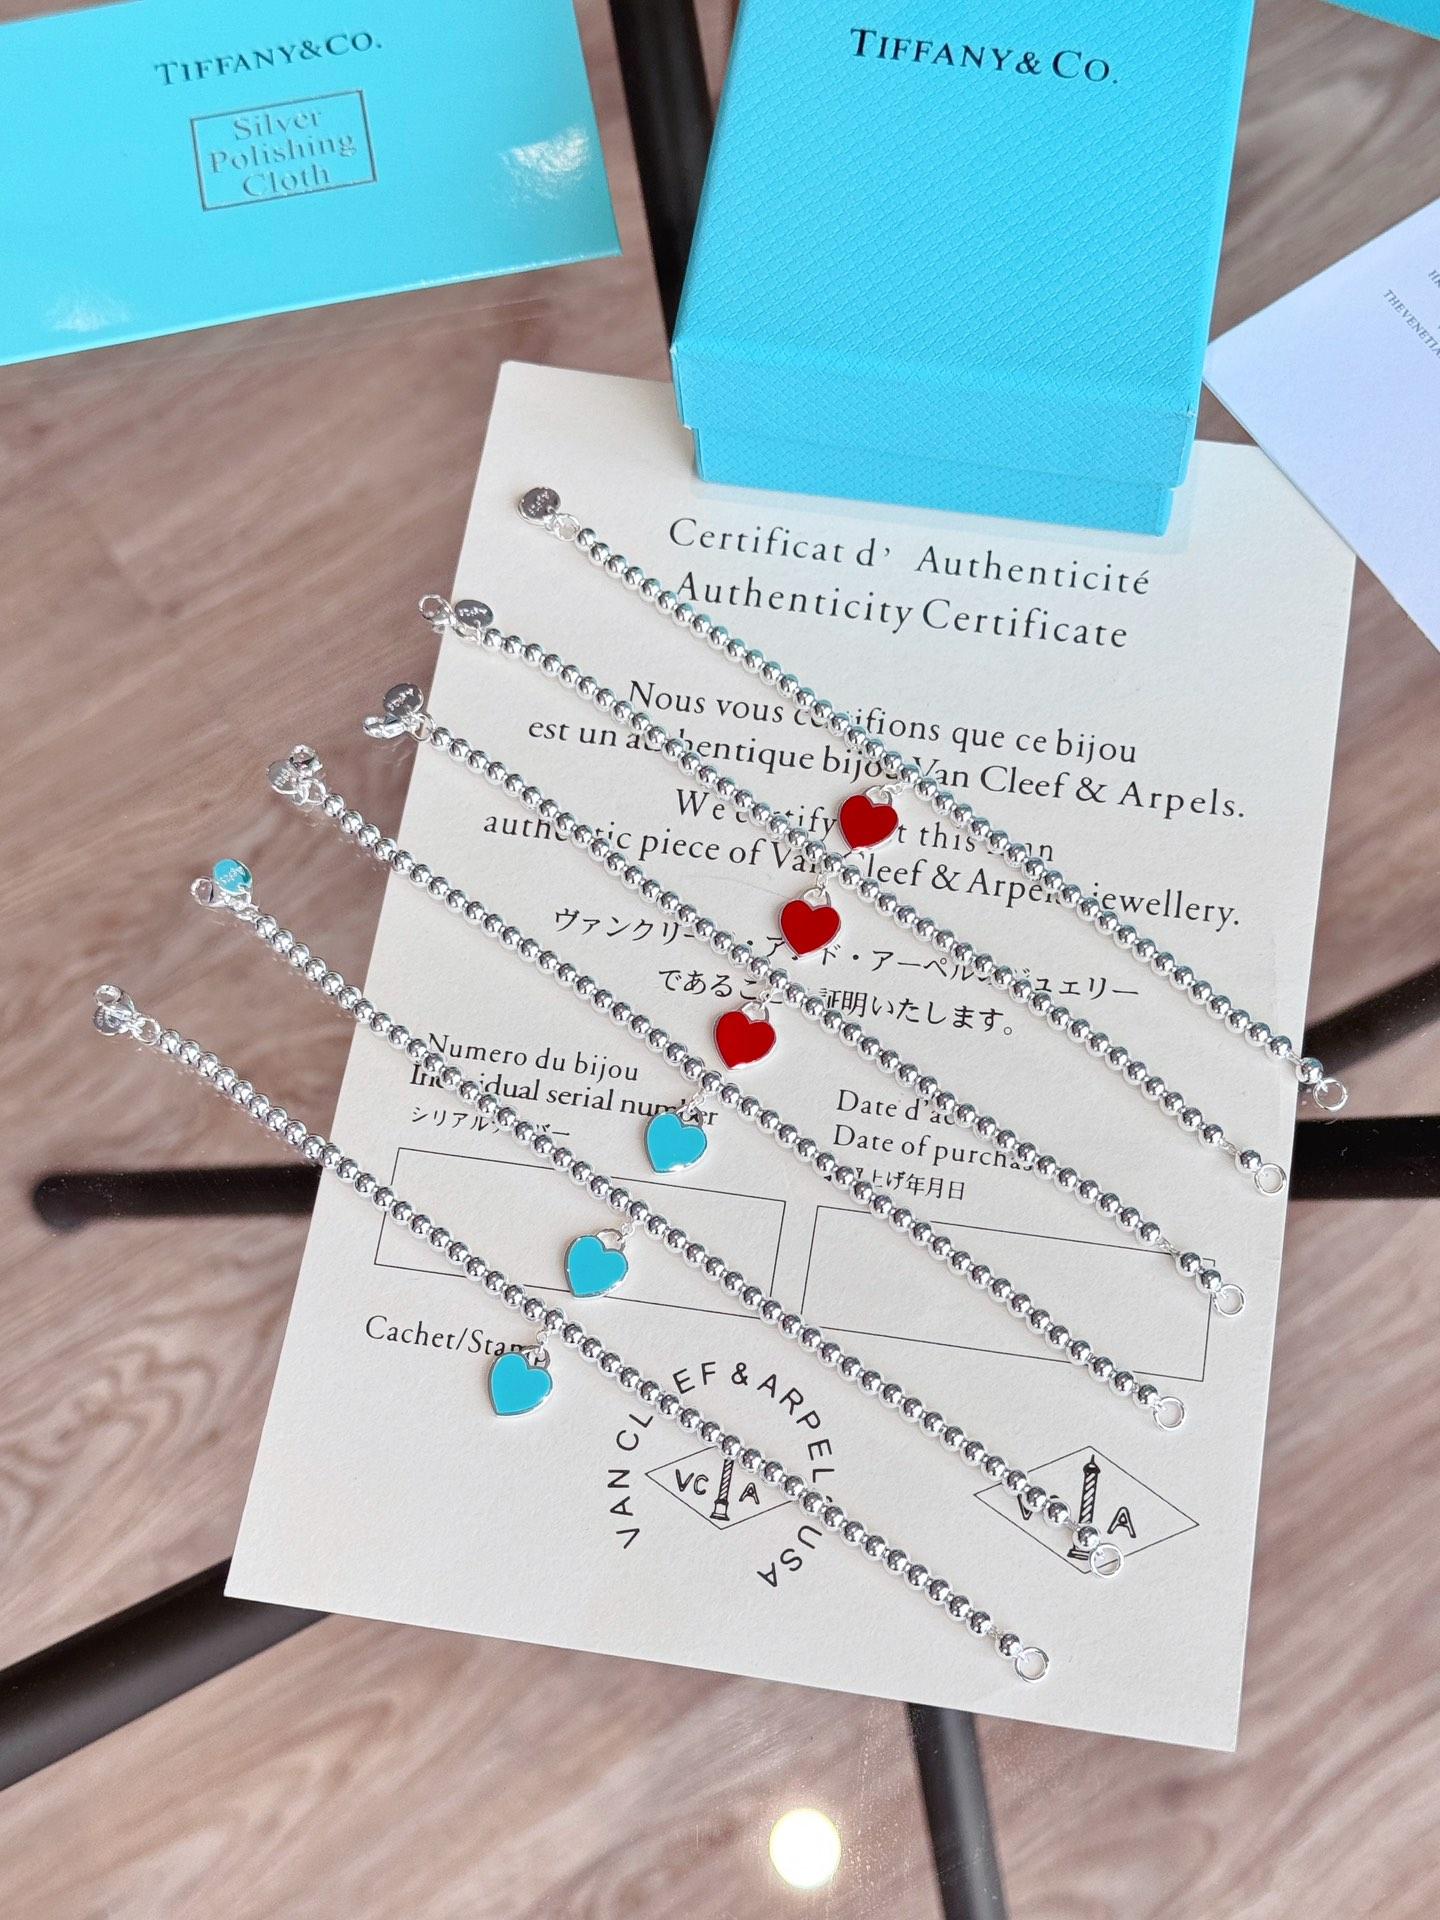 TIFFANY&CO.
Silver
Polishing
Cloth
TIFFANY & CO.
THEVENETIA
Certificat d' Authenticité
Authenticity Certificate
Nous vous certifions que ce bijou
est un authentique bijou Van Cleef & Arpels.
We certify that this is an
authentic piece of Van Cleef & Arpels jewellery.
ヴァンクリーフ・アンド・アーペルのジュエリー
であることを証明いたします。
Numero du bijou
Individual serial number
シリアルナンバー
Date d'ac
Date of purchase
上げ年月日
Cachet/Stamp
VAN CLEEF & ARPELS USA
VC A
V A